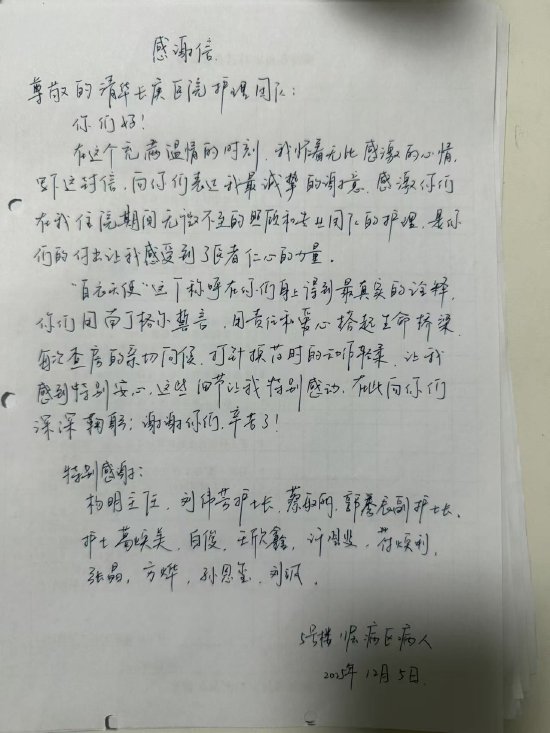 感谢信
尊敬的清华长庚医院护理团队:
你们好!
在这个充满温情的时刻,我怀着无比感激的心情,
写下这封信,向你们表达我最诚挚的谢意,感激你们
在我住院期间无微不至的照顾和专业团队的护理,是你
们的付出让我感受到了医者仁心的力量。
"白衣天使"这个称呼在你们身上得到最真实的诠释,
你们用南丁格尔誓言,用责任和爱心搭起生命桥梁,
每次查房的亲切问候,打针换药时的动作轻柔,让我
感到特别安心,这些细节让我特别感动,在此向你们
深深鞠躬:谢谢你们,辛苦了!
特别感谢:
杨明主任,刘伟芳护士长,蔡,郭副护士长,
护士葛焕美,白俊,王欣鑫,许,苻顺利,
张晶,方烨,孙恩玺,刘
5号楼1层病区病人
2025年12月5日.